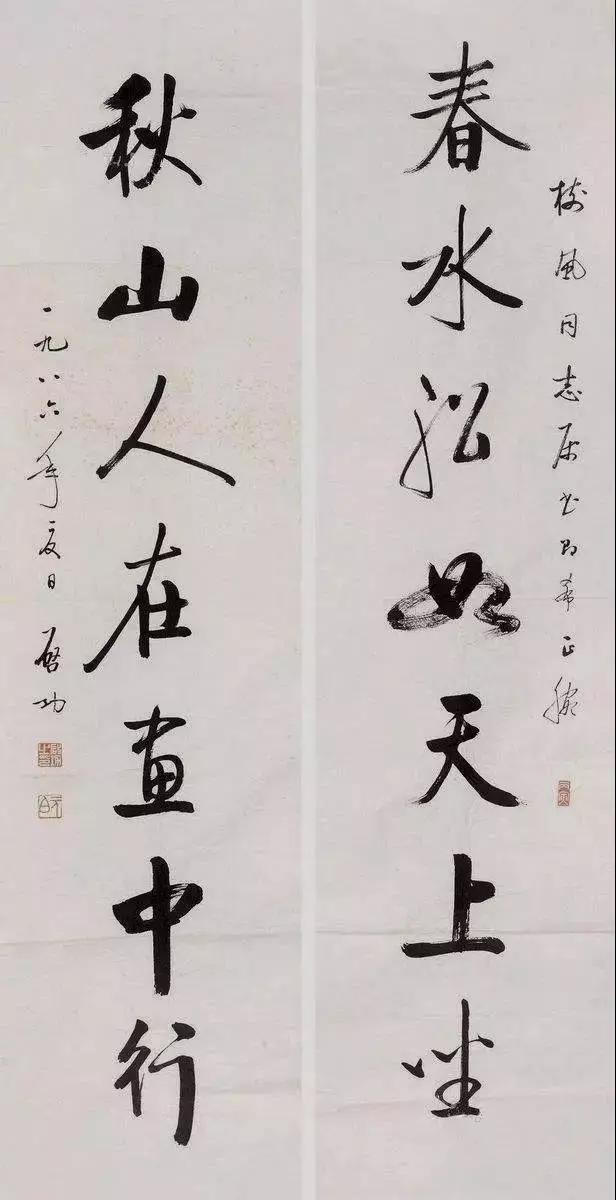 樹風同志属书即希正腕
春水舩如天上坐
秋山人在画中行
一九八六年夏日 啓功
元白